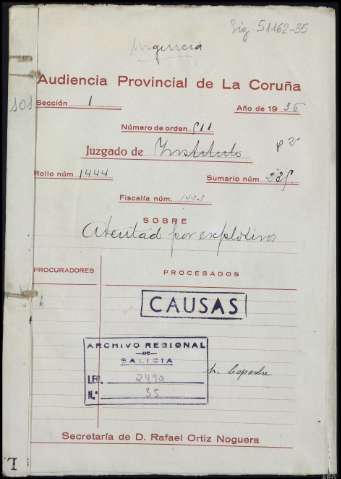 Sig. 51162-35
Urgencia
Audiencia Provincial de La Coruña
101
Sección 1 Año de 1936
Número de orden
Juzgado de Instituto
Rollo núm. 1444 Sumario núm.
Fiscalía núm.
SOBRE
Atentad por explosivos
PROCURADORES PROCESADOS
CAUSAS
ARCHIVO REGIONAL
DE
GALICIA
LEG. 2490
N.° 35
Secretaría de D. Rafael Ortiz Noguera